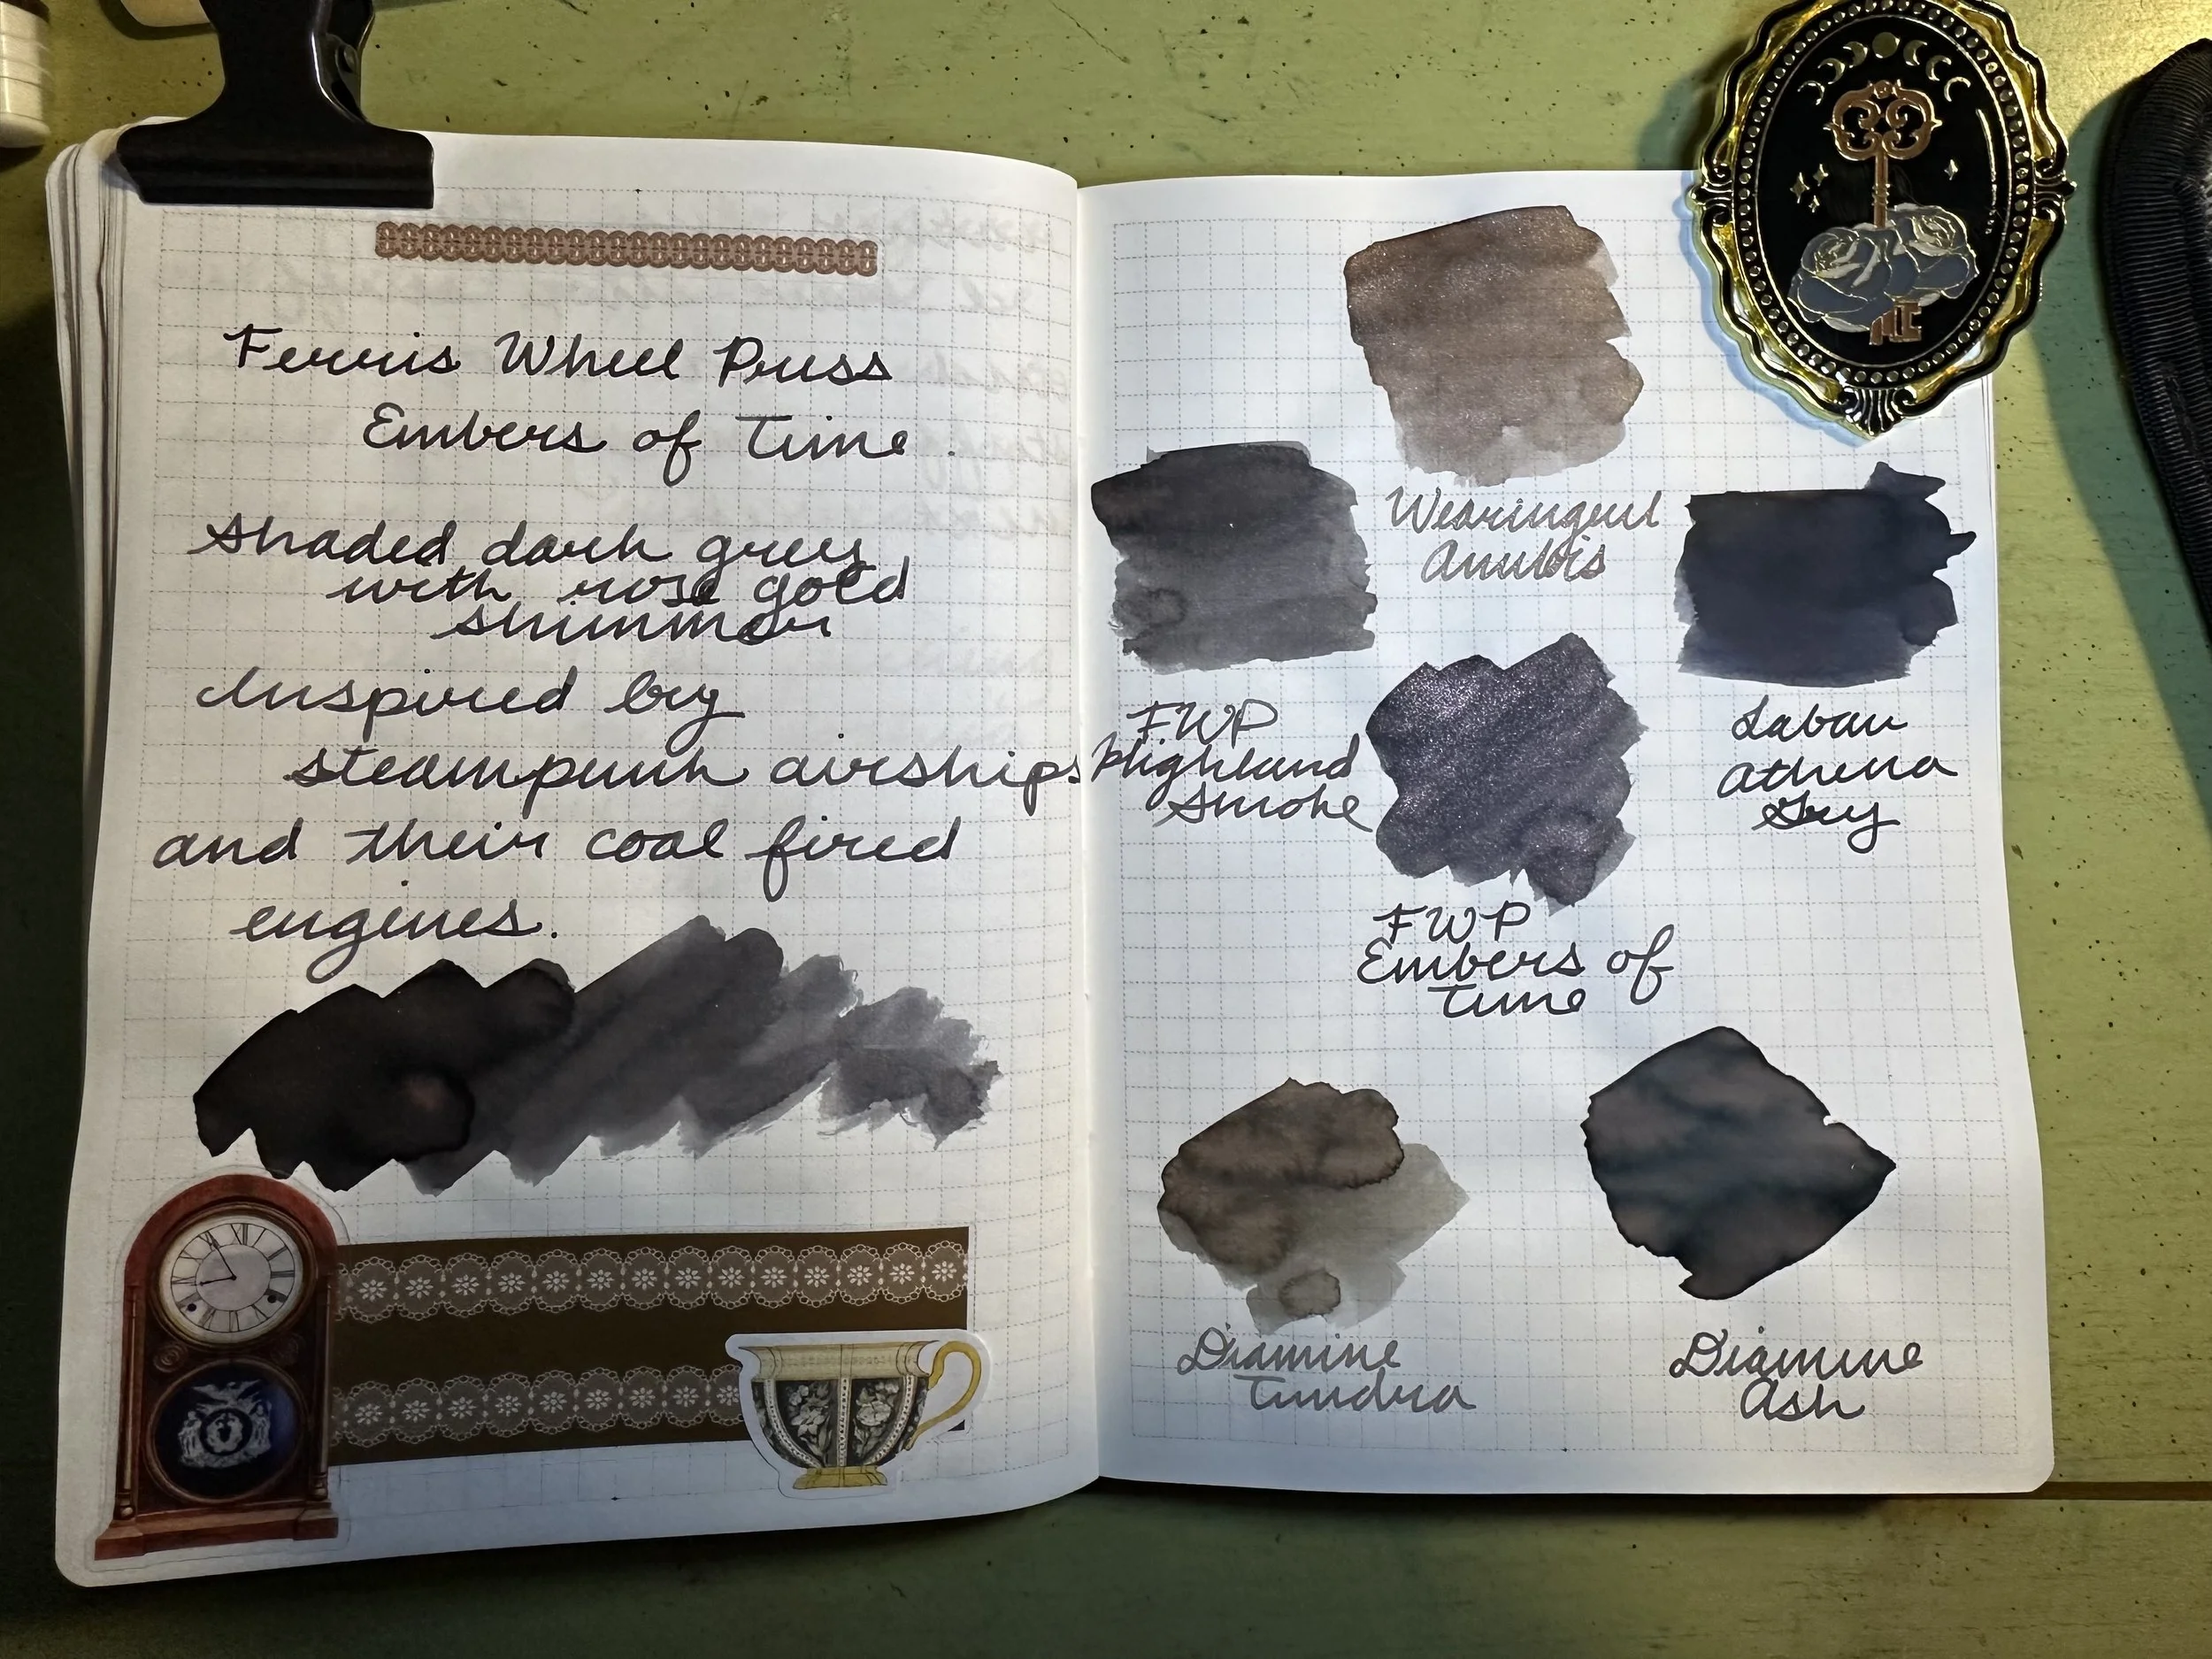 Ferris Wheel Press
Embers of Time.
Shaded dark grey
with rose gold
shimmer
Inspired by
steampunk airships
and their coal fired
engines.
Wearingeul
Anubis
FWP
Highland
Smoke
Laban
Athena
Grey
FWP
Embers of
Time
Diamine
Tundra
Diamine
Ash